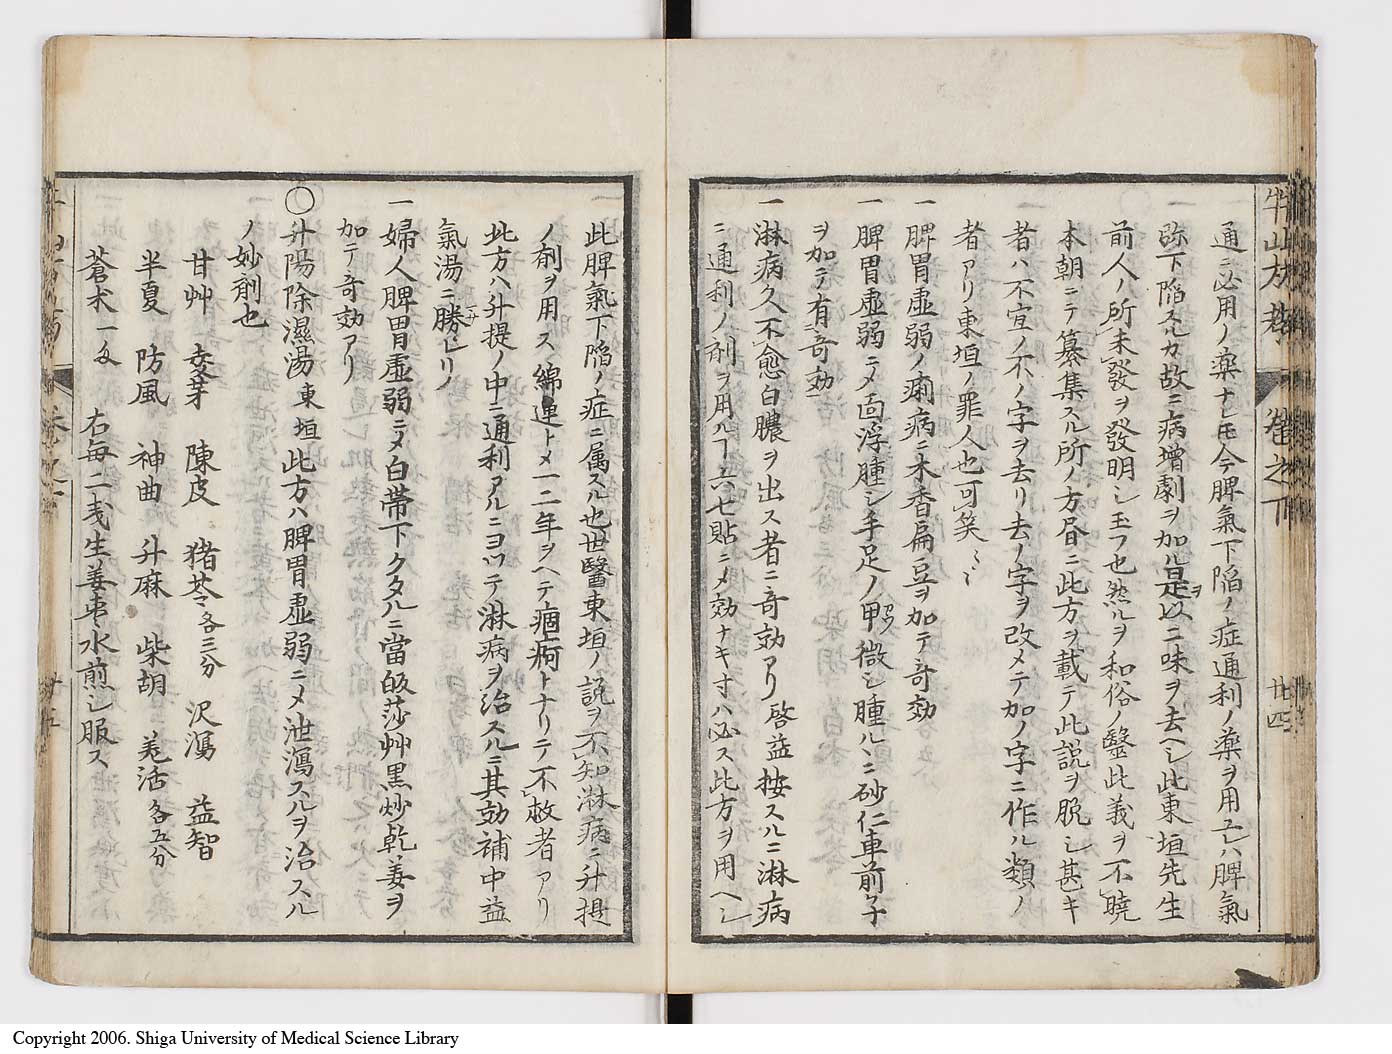 牛山方考 卷之下 廿四
通ニ必用ノ藥ナレ𪜈今脾氣下陷ノ症通利ノ藥ヲ用レハ脾氣
弥下陷スルカ故ニ病增劇ヲ加ル是ヲ以二味ヲ去ヘシ此東垣先生
前人ノ所未發ヲ發明シ玉フ也然ルヲ和俗ノ醫此義ヲ不曉
本朝ニテ纂集スル所ノ方昏ニ此方ヲ載テ此説ヲ脱シ甚キ
者ハ不宜ノ不ノ字ヲ去リ去ノ字ヲ改メテ加ノ字ニ作ル類ノ
者アリ東垣ノ罪人也可笑〻〻
一 脾胃虛弱ノ痢病ニ木香扁豆ヲ加テ奇効
一 脾胃虛弱ニメ面浮腫シ手足ノ甲微シ腫ルヽニ砂仁車前子
ヲ加テ有奇効
一 淋病久不愈白膿ヲ出ス者ニ奇効アリ啓益按スルニ淋病
ニ通利ノ剤ヲ用ルヿ六七貼ニメ効ナキ寸ハ必ス此方ヲ用ヘシ
此脾氣下陷ノ症ニ属スル也世醫東垣ノ説ヲ不知淋病ニ升提
ノ剤ヲ用ス綿連トメ一二年ヲヘテ痼痾トナリテ不救者アリ
此方ハ升提ノ中ニ通利アルニヨツテ淋病ヲ治スルニ其効補中益
氣湯ニ勝レリ
一 婦人脾胃虛弱ニメ白帶下クタルニ當皈莎艸黒炒乾姜ヲ
加テ奇効アリ
○升陽除濕湯東垣此方ハ脾胃虛弱ニメ泄瀉スルヲ治スル
ノ妙剤也
甘艸 麥芽 陳皮 猪苓各三分 沢瀉 益智
半夏 防風 神曲 升麻 柴胡 羌活各五分
蒼朮一匁 右每二戔生姜棗水煎シ服ス
廿五
Copyright 2006. Shiga University of Medical Science Library